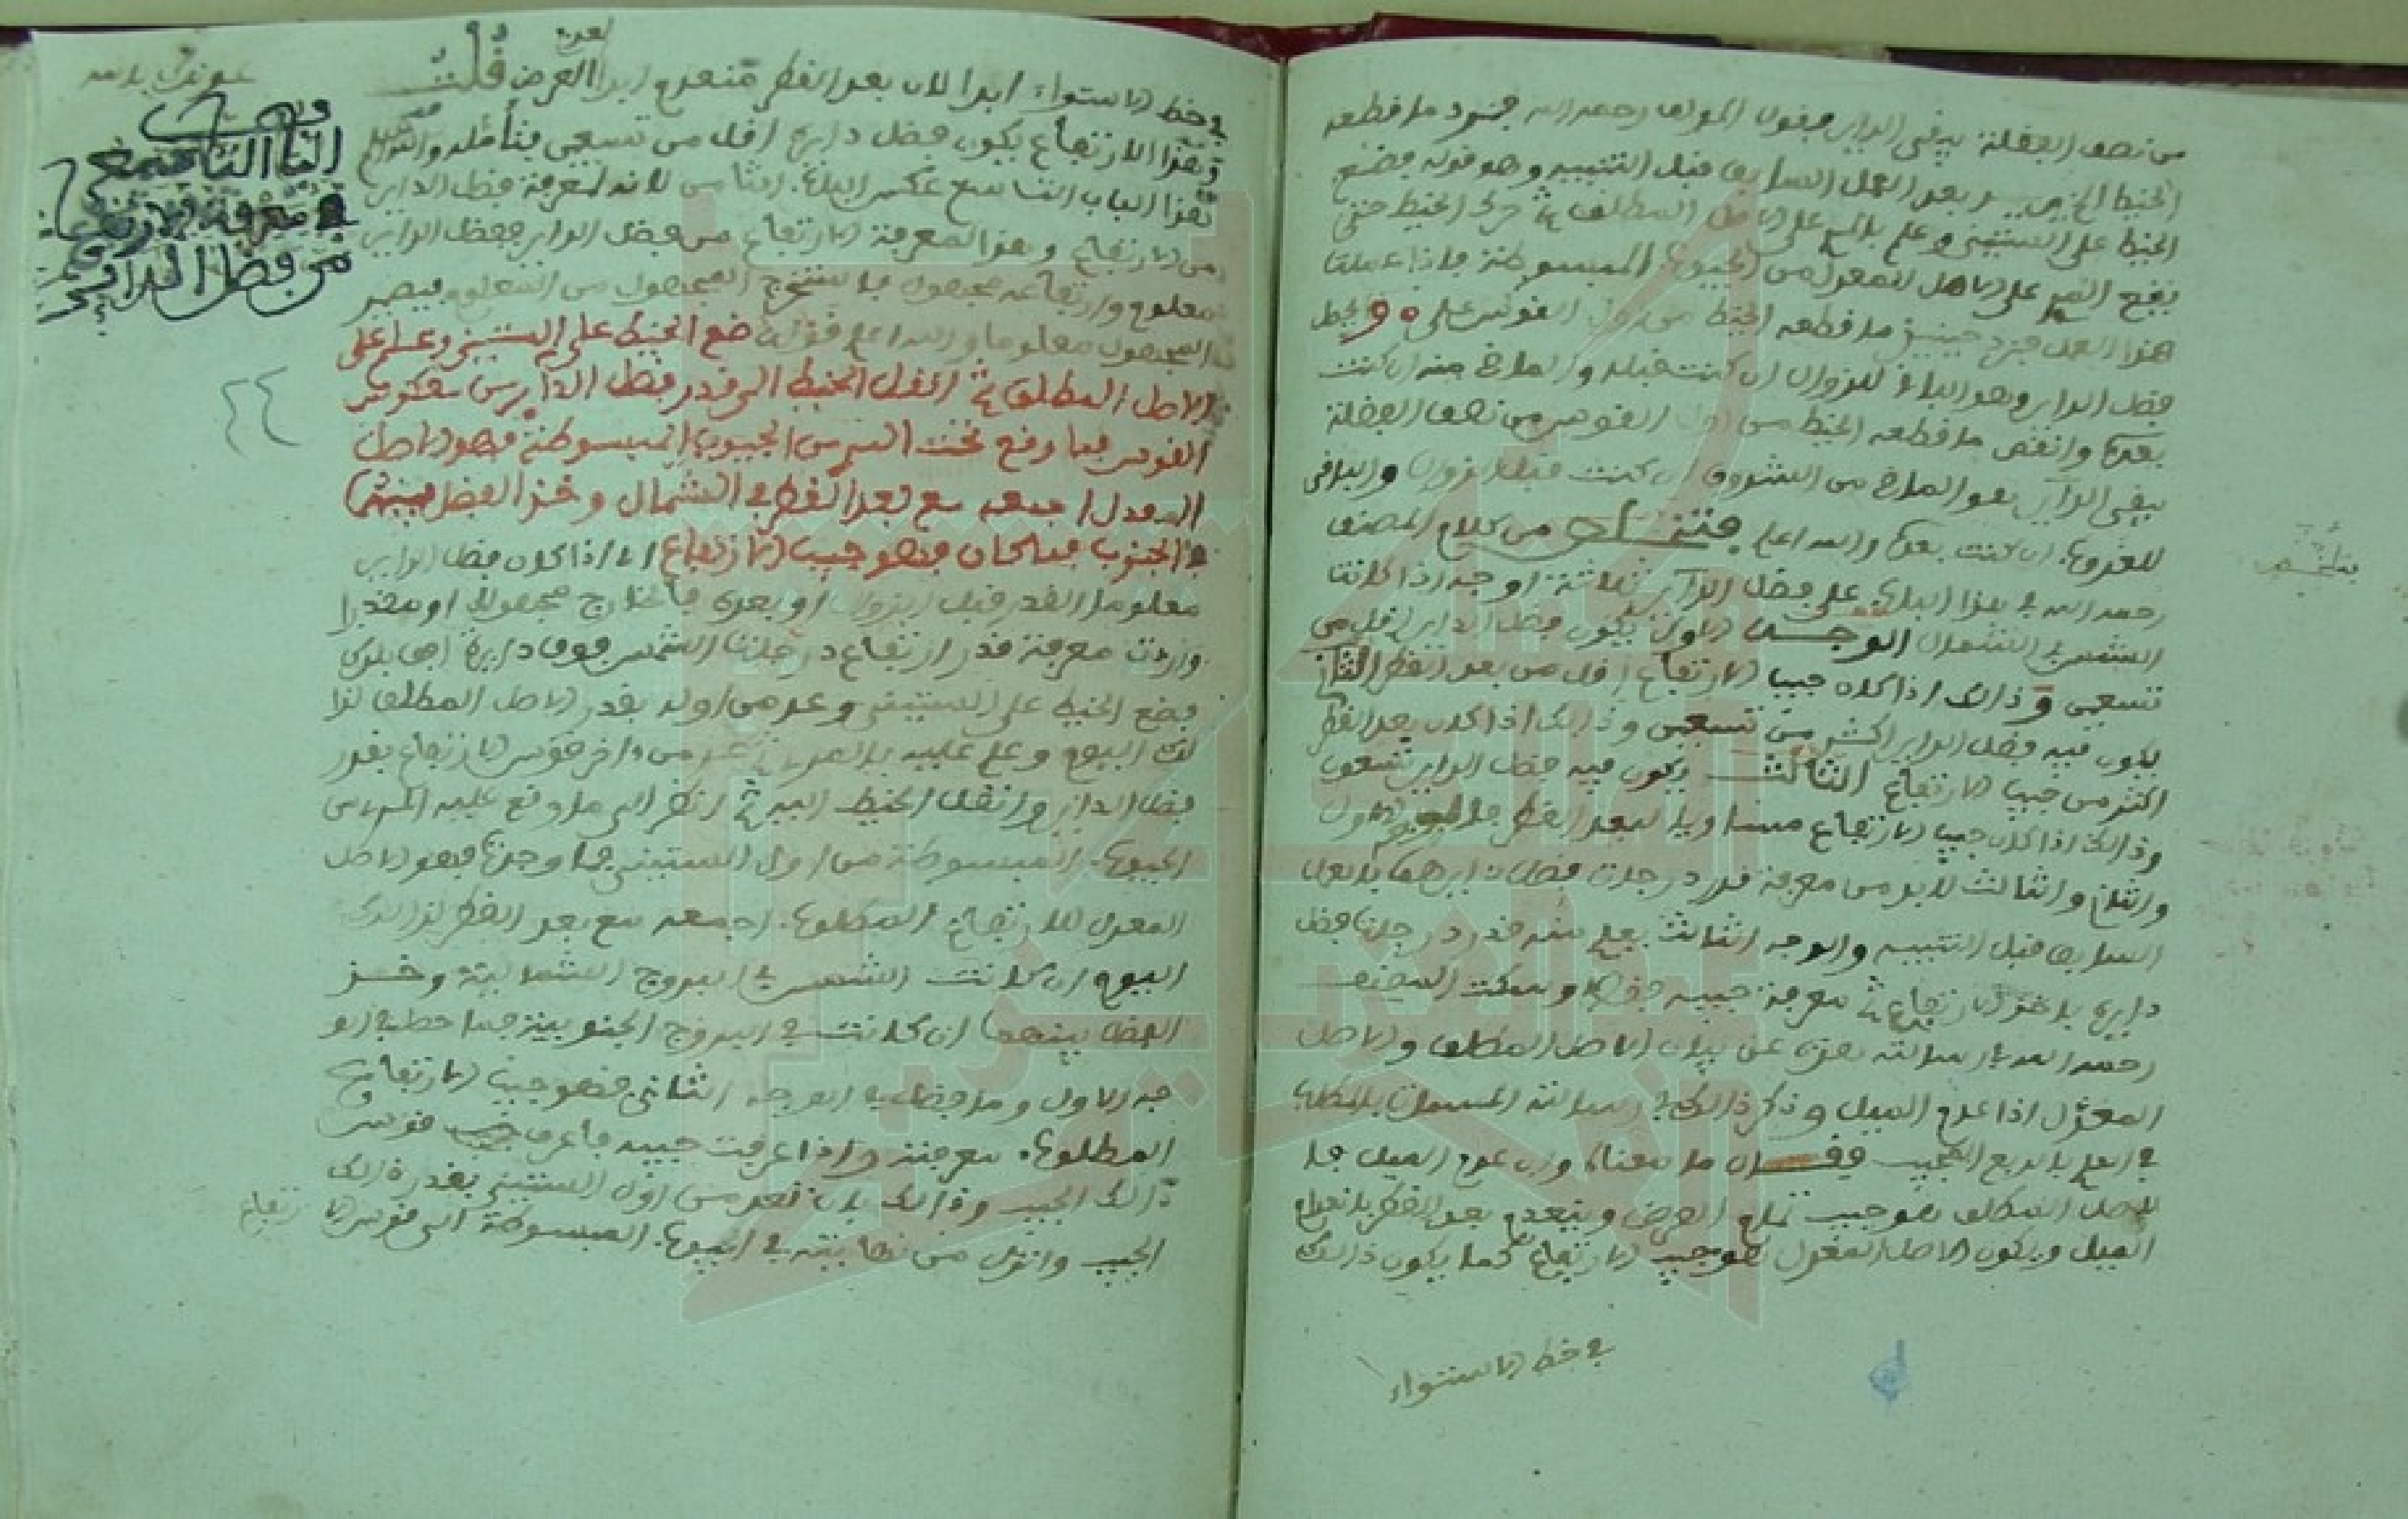 من نصف الفضلة يبقى الداير فقول المؤلف رحمه الله فزد ما قطعه
الخيط الخ يعني بعد العمل السابق قبل التنبيه وهو قوله فضع
الخيط على الستيني وعلم بالمري على الاصل المطلق ثم حرك الخيط حتى
يقع المري على الاصل المعدل من الجيوب المبسوطة فاذا عملت
هذا العمل فزد حينئذ ما قطعه الخيط من اول القوس على 90 يحصل
فضل الداير وهو الباقي للزوال ان كنت قبله والماضي منه ان كنت
بعده وانقص ما قطعه الخيط من اول القوس من نصف الفضلة
يبقى الداير هو الماضي من الشروق ان كنت قبل الزوال والباقي
للغروب ان كنت بعده والله اعلم فتنبيه من كلام المصنف
رحمه الله في هذا الباب على فضل الداير ثلاثة اوجه اذا كانت
الشمس في الشمال الوجه الاول يكون فضل الداير اقل من
تسعين وذالك اذا كان جيب الارتفاع اقل من بعد القطر الثاني
يكون فيه فضل الداير اكثر من تسعين وذالك اذا كان بعد القطر
اكثر من جيب الارتفاع الثالث يكون فيه فضل الداير تسعون
وذالك اذا كان جيب الارتفاع مساويا لبعد القطر فالوجه الاول
والثاني والثالث لابد من معرفة قدر درجات فضل دايرهما بالعمل
السابق قبل التنبيه والوجه الثالث يعلم منه قدر درجات فضل
دايره باخذ الارتفاع ثم معرفة جيبه فقط وسكت المصنف
رحمه الله في رسالته هذه عن بيان الاصل المطلق والاصل
المعدل اذا عدم الميل وذكر ذالك في رسالته المسماة بالمطلب
في العمل بالربع المجيب فقال ما معناه وان عدم الميل فا
لاصل المطلق هو جيب تمام العرض وينعدم بعد القطر بانعدام
الميل ويكون الاصل المعدل هو جيب الارتفاع كما يكون ذالك
في خط الاستواء
في خط الاستواء ابدا لان بعد القطر منعدم ابدا لعدم العرض قلت
وهذا الارتفاع يكون فضل دايره اقل من تسعين فتأمله والله اعلم
هذا الباب التاسع عكس الباب الثامن لانه لمعرفة فضل الداير
من الارتفاع وهذا لمعرفة الارتفاع من فضل الداير ففضل الداير
معلوم وارتفاعه مجهول فاستخرج المجهول من المعلوم فيصير
المجهول معلوما والله اعلم قوله ضع الخيط على الستيني وعلم على
الاصل المطلق ثم انقل الخيط الى قدر فضل الداير من
القوس فما وقع تحت المري من الجيوب المبسوطة فهو الاصل
المعدل اجمعه مع بعد القطر في الشمال وخذ الفضل بينهما
في الجنوب فما كان فهو جيب الارتفاع اي اذا كان فضل الداير
معلوما القدر قبل الزوال او بعده
واردت معرفة قدر ارتفاع درجات الشمس فوق دايرة
فضع الخيط على الستيني وعد من اوله بقدر الاصل المطلق لذا
لك اليوم وعلم عليه بالمري ثم عد من اخر قوس الارتفاع بقدر
فضل الداير وانقل الخيط اليه ثم انظر الى ما وقع عليه المري من
الجيوب المبسوطة من اول الستيني فما وجدته فهو الاصل
المعدل للارتفاع المطلوب اجمعه مع بعد القطر لذالك
اليوم ان كانت الشمس في البروج الشمالية وخذ
الفضل بينهما ان كانت في البروج الجنوبية فما حصل في الو
جه الاول وما فضل في الوجه الثاني فهو جيب الارتفاع
المطلوب معرفته واذا عرفت جيبه فاعرف قوس
ذالك الجيب وذالك بان تعد من اول الستيني بقدر ذالك
الجيب وانزل من نهايته في الجيوب المبسوطة الى قوس الارتفاع
الباب التاسع
في معرفة الارتفاع
من فضل الداير
٤٤